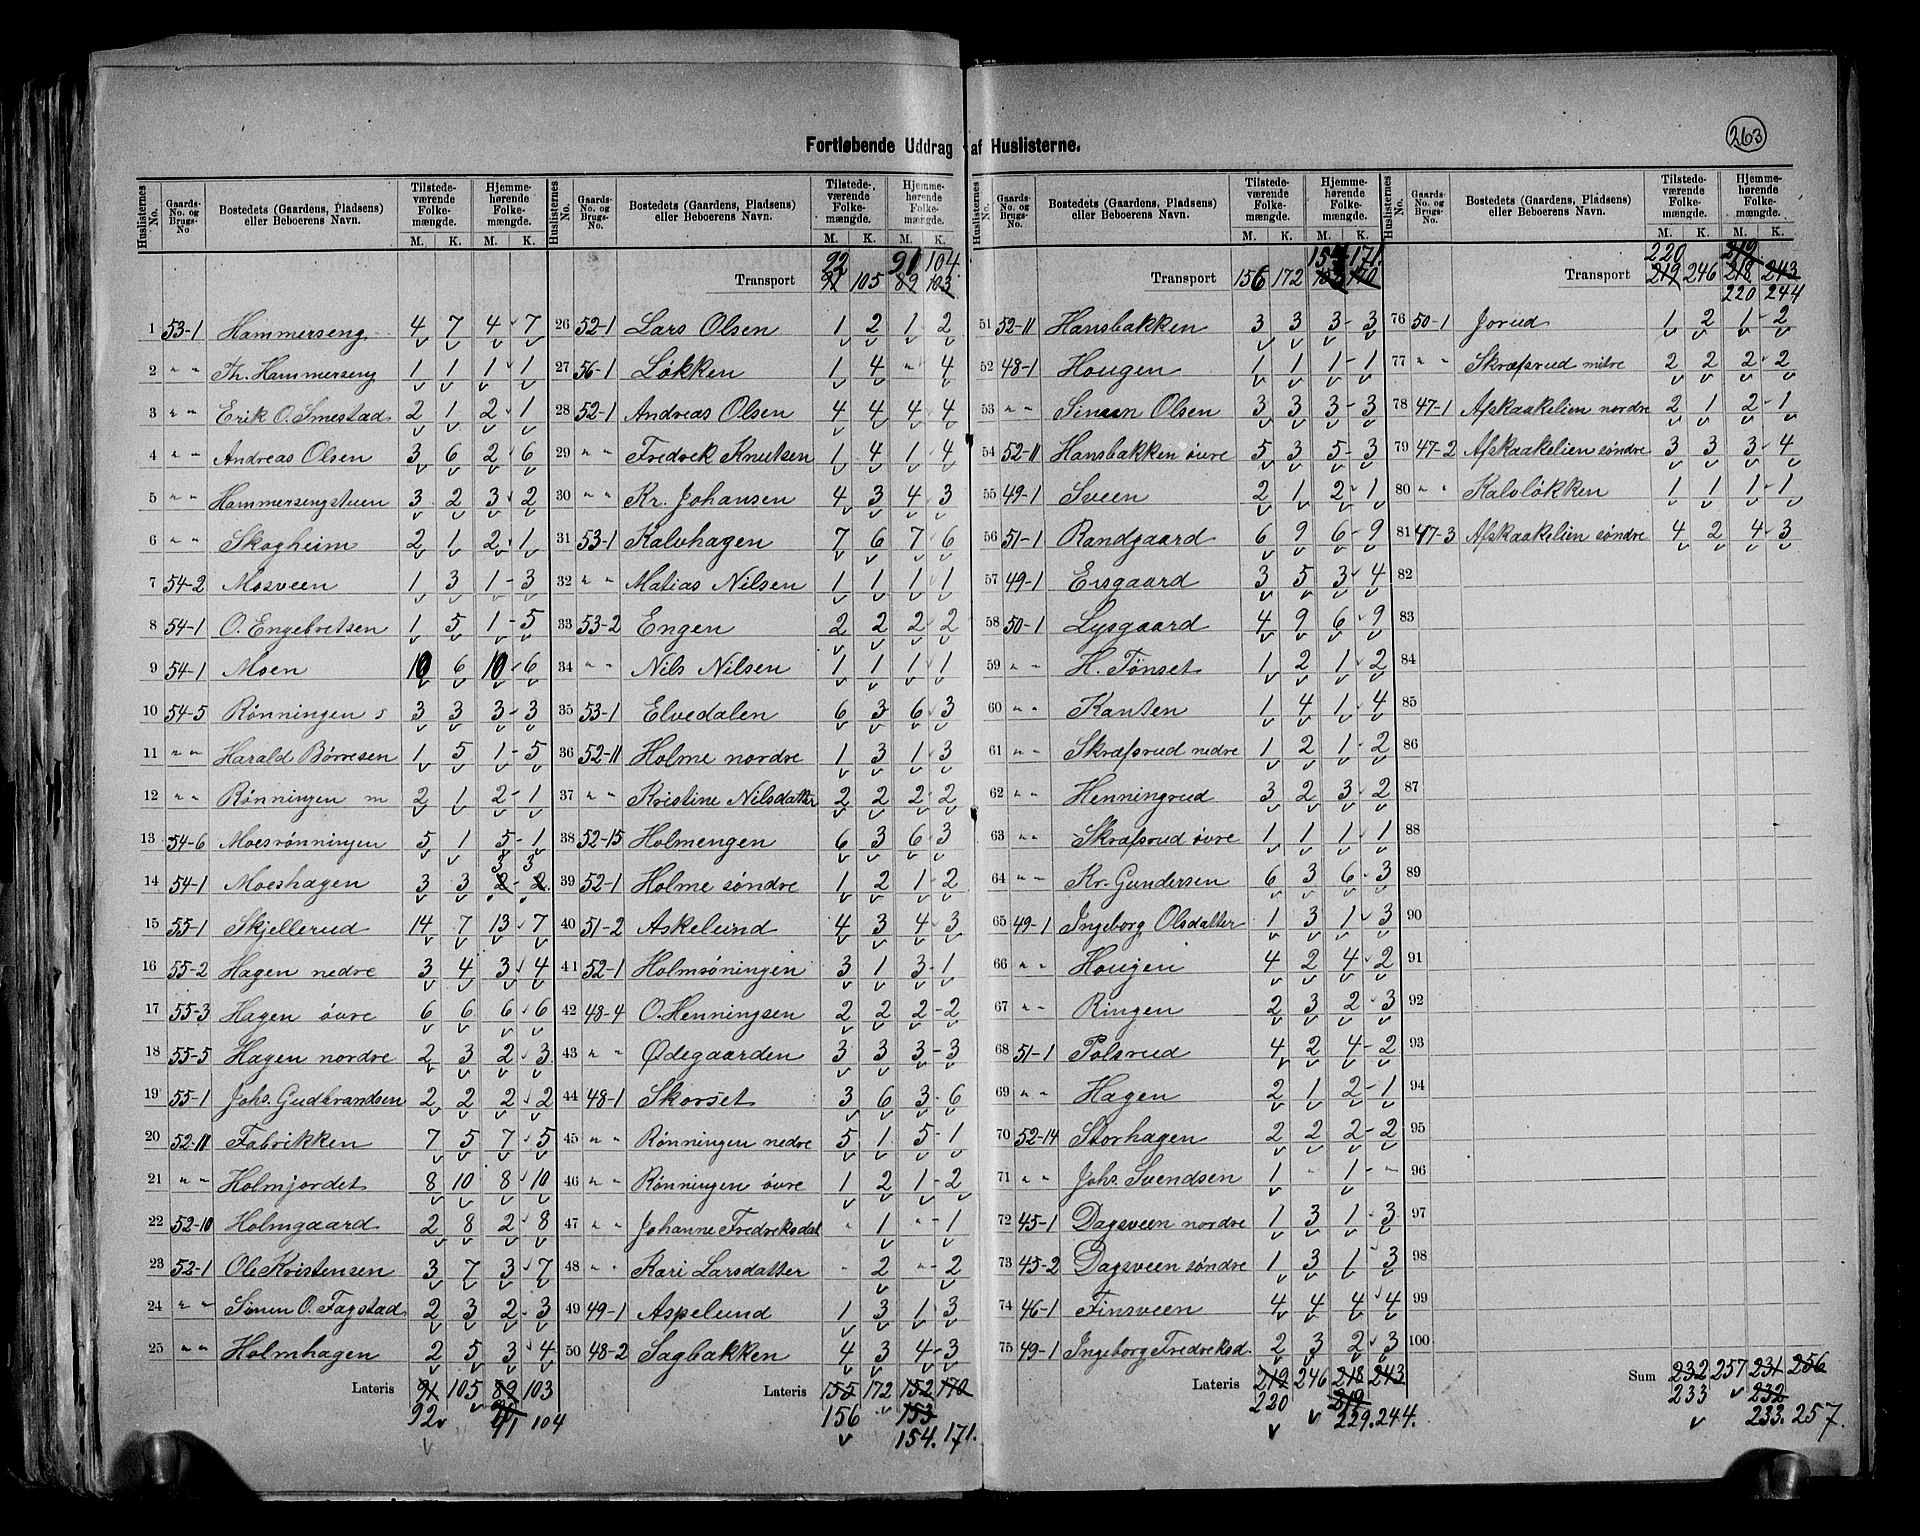 263
Fortløbende Uddrag af Huslisterne.
Huslisternes No. | Gaards-No. og Brugs-No | Bostedets (Gaardens, Pladsens) eller Beboerens Navn. | Tilstedeværende Folkemængde. M. K. | Hjemmehørende Folkemængde. M. K.
1 53-1 Hammerseng 4 7 4 7
2 " " Th. Hammerseng 1 1 1 1
3 " " Erik O. Smestad 2 1 2 1
4 " " Andreas Olsen 3 6 2 6
5 " " Hammersengstuen 3 2 3 2
6 " " Skogheim 2 1 2 1
7 54-2 Mosveen 1 3 1-3
8 54-1 O. Engebretsen 1 5 1-5
9 54-1 Moen 10 6 10 6
10 54-5 Rønningen s 3 3 3-3
11 " " Harald Børresen 1 5 1-5
12 " " Rønningen m 2 1 2-1
13 54-6 Moesrønningen 5 1 5-1
3 3
14 54-1 Moeshagen 3 3 2-2
15 55-1 Skjellerud 14 7 13 7
16 55-2 Hagen nedre 3 4 3 4
17 55-3 Hagen øvre 6 6 6 6
18 55-5 Hagen nordre 2 3 2 3
19 55-1 Johs. Gudbrandsen 2 2 2 2
20 52-11 Fabrikken 7 5 7 5
21 " " Holmjordet 8 10 8 10
22 52-10 Holmgaard 2 8 2 8
23 52-1 Ole Kristensen 3 7 3 7
24 " " Simen O. Fagstad 2 3 2-3
25 " " Holmhagen 2 5 3 4
Lateris 91 105 89 103
92 91 104
Huslisternes No. | Gaards-No. og Brugs-No. | Bostedets (Gaardens, Pladsens) eller Beboerens Navn. | Tilstedeværende Folkemængde. M. K. | Hjemmehørende Folkemængde. M. K.
92 91 104
Transport 91 105 89 103
26 52-1 Lars Olsen 1 2 1 2
27 56-1 Løkken 1 4 " 4
28 52-1 Andreas Olsen 4 4 4 4
29 " " Fredrek Knutsen 1 4 1 4
30 " " Kr. Johansen 4 3 4 3
31 53-1 Kalvhagen 7 6 7 6
32 " " Matias Nilsen 1 1 1 1
33 53-2 Engen 2 2 2 2
34 " " Nils Nilsen 1 1 1 1
35 53-1 Elvedalen 6 3 6 3
36 52-11 Holme nordre 1 3 1 3
37 " " Kristine Nilsdatter 2 2 2-2
38 52-15 Holmengen 6 3 6 3
39 52-1 Holme søndre 1 2 1-2
40 51-2 Askelund 4 3 4 3
41 52-1 Holmsøningen 3 1 3-1
42 48-4 O. Henningsen 2 2 2-2
43 " " Ødegaarden 3 3 3-3
44 48-1 Skorset 3 6 3-6
45 " " Rønningen nedre 5 1 5-1
46 " " Rønningen øvre 1 2 1-2
47 " " Johanne Fredreksdat " 1 "-1
48 " " Kari Larsdatter " 2 "-2
49 49-1 Aspelund 1 3 1 3
50 48-2 Sagbakken 4 3 4-3
Lateris 155 172 152 170
156 153
154. 171.
Huslisternes No. | Gaards-No. og Brugs-No. | Bostedets (Gaardens, Pladsens) eller Beboerens Navn. | Tilstedeværende Folkemængde. M. K. | Hjemmehørende Folkemængde. M. K.
154 171.
Transport 156 172 152 170
51 52-11 Hansbakken 3 3 3-3
52 48-1 Hougen 1 1 1-1
53 " " Simen Olsen 3 3 3-3
54 52-11 Hansbakken øvre 5 3 5-3
55 49-1 Sveen 2 1 2-1
56 51-1 Randgaard 6 9 6-9
57 49-1 Ersgaard 3 5 3 4
58 50-1 Lysgaard 4 9 6 9
59 " " H. Tønset 1 2 1 2
60 " " Kanten 1 4 1 4
61 " " Skræfsrud nedre 1 2 1-2
62 " " Henningrud 3 2 3 2
63 " " Skræfsrud øvre 1 1 1 1
64 " " Kr. Gundersen 6 3 6-3
65 49-1 Ingeborg Olsdatter 1 3 1 3
66 " " Hougen 4 2 4 2
67 " " Ringen 2 3 2 3
68 51-1 Polsrud 4 2 4-2
69 " " Hagen 2 1 2-1
70 52-14 Storhagen 2 2 2-2
71 " " Johs. Svendsen 1 " 1-"
72 45-1 Dagsveen nordre 1 3 1 3
73 45-2 Dagsveen søndre 1 3 1 3
74 46-1 Finsveen 4 4 4 4
75 49-1 Ingeborg Fredreksd. 2 3 2 3
Lateris 219 246 218 243
220 219
229. 244.
Huslisternes No. | Gaards-No. og Brugs-No. | Bostedets (Gaardens, Pladsens) eller Beboerens Navn. | Tilstedeværende Folkemængde. M. K. | Hjemmehørende Folkemængde. M. K.
220 219
Transport 219 246 218 243
220 244
76 50-1 Jorud 1 2 1-2
77 " " Skræfsrud mitre 2 2 2 2
78 47-1 Afskaakelien nordre 2 1 2-1
79 47-2 Afskaakelien søndre 3 3 3 4
80 " " Kalvløkken 1 1 1-1
81 47-3 Afskaakelien søndre 4 2 4 3
82
83
84
85
86
87
88
89
90
91
92
93
94
95
96
97
98
99
100
Sum 232 257 231 256
233 232
233. 257.